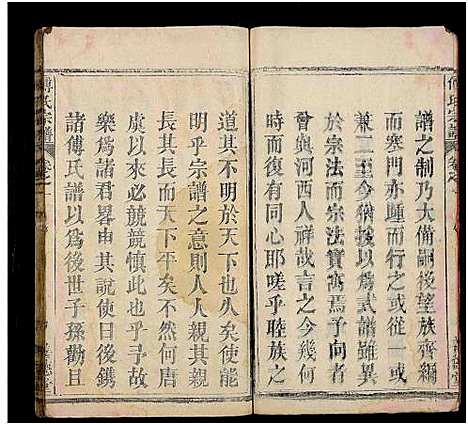 譜之制乃大備嗣後望族齊編
而寒門亦踵而行之或從一或
兼二至今猶援以爲式譜雖異
於宗法而宗法實寓焉予向者
曾與河西人祥哉言之今幾何
時而復有同心耶嗟乎睦族之
道其不明於天下也久矣使能
明乎宗譜之意則人人親其親
長其長而天下平矣不然何唐
虞以來必兢兢慎此也乎予故
樂爲諸君畧由其說使日後鐫
諸傅氏譜以爲後世子孫勸且
傅氏宗譜
卷之一